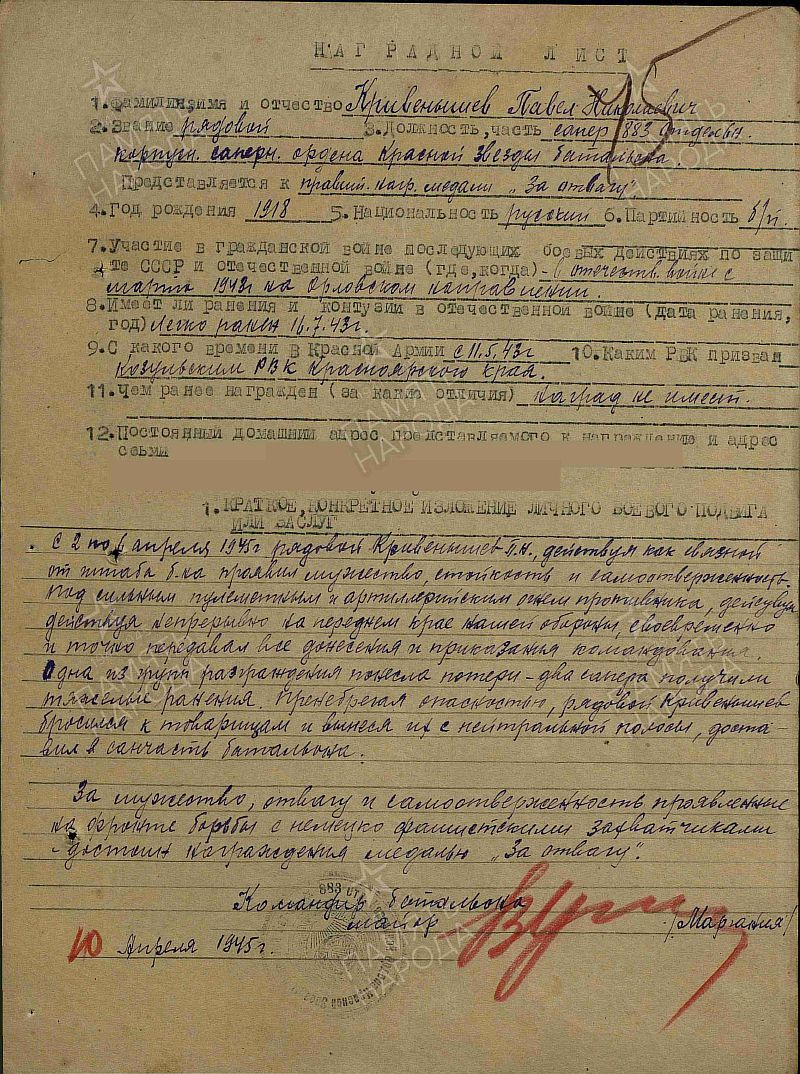 НАГРАДНОЙ ЛИСТ
15
1.Фамилия,имя и отчество Кривенышев Павел Николаевич
2.Звание рядовой 3.Должность,часть сапер 883 отдельн.
корпусн. саперн. ордена Красной Звезды батальона.
Представляется к правит. нагр. медали „За отвагу"
4.Год рождения 1918 5.Национальность русский 6.Партийность б/п
7.Участие в гражданской войне последующих боевых действиях по защи
те СССР и отечественной войне (где,когда)- в отечеств. войне с
марта 1943г на Орловском направлении.
8.Имеет ли ранения и контузии в отечественной войне (дата ранения,
год) Легко ранен 16.7.43г.
9.С какого времени в Красной Армии с 11.5.43г 10.Каким РВК призван
Козульским РВК Красноярского края.
11.Чем ранее награжден (за какие отличия) наград не имеет.
12.Постоянный домашний адрес,представляемого к награждению и адрес
семьи
1.КРАТКОЕ,КОНКРЕТНОЕ ИЗЛОЖЕНИЕ ЛИЧНОГО БОЕВОГО ПОДВИГА
ИЛИ ЗАСЛУГ
С 2 по 6 апреля 1945г рядовой Кривенышев П.Н., действуя как связной
от штаба б-на проявил мужество, стойкость и самоотверженность.
Под сильным пулеметным и артиллерийским огнем противника, действуя
действуя непрерывно на переднем крае нашей обороны, своевременно
и точно передавал все донесения и приказания командования.
Одна из групп разграждения понесла потери - два сапера получили
тяжелые ранения. Пренебрегая опасностью, рядовой Кривенышев
бросился к товарищам и вынеся их с нейтральной полосы, доста-
вил в санчасть батальона.
За мужество, отвагу и самоотверженность проявленные
на фронте борьбы с немецко фашистскими захватчиками
- достоин награждения медалью „За отвагу".
Командир батальона
майор /Маргания/
10 Апреля 1945г.
ПАМЯТЬ НАРОДА